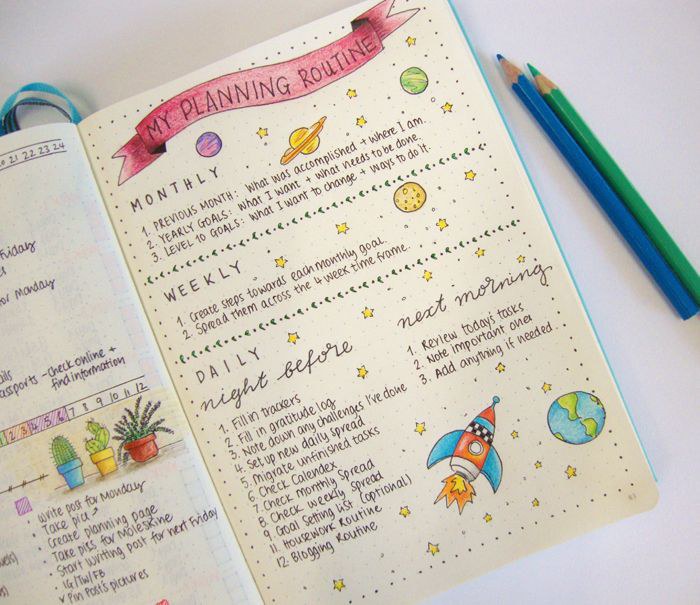 20 21 22 23 24
Friday
for Monday
passports - check online +
find information
1 2 3 4 5 6 7 8 9 10 11 12
• Write post for Monday
• Take pic
• Create planning page
• Take pics for Moleskine
• Start writing post for next Friday
• IG/TW/FB
Pin Post's pictures
MY PLANNING ROUTINE
MONTHLY
1. PREVIOUS MONTH: what was accomplished + where I am.
2. YEARLY GOALS: what I want + what needs to be done.
3. LEVEL 10 GOALS: what I want to change + ways to do it.
WEEKLY
1. Create steps towards each monthly goal.
2. Spread them across the 4 week time frame.
DAILY
night before
1. Fill in trackers
2. Fill in gratitude log
3. Note down any challenges I've done
4. Set up new daily spread
5. Migrate unfinished tasks
6. Check Calendex
7. Check monthly Spread
8. Check weekly spread
9. Goal setting list (optional)
11. Housework Routine
12. Blogging Routine
next morning
1. Review today's tasks
2. Note important ones
3. Add anything if needed.